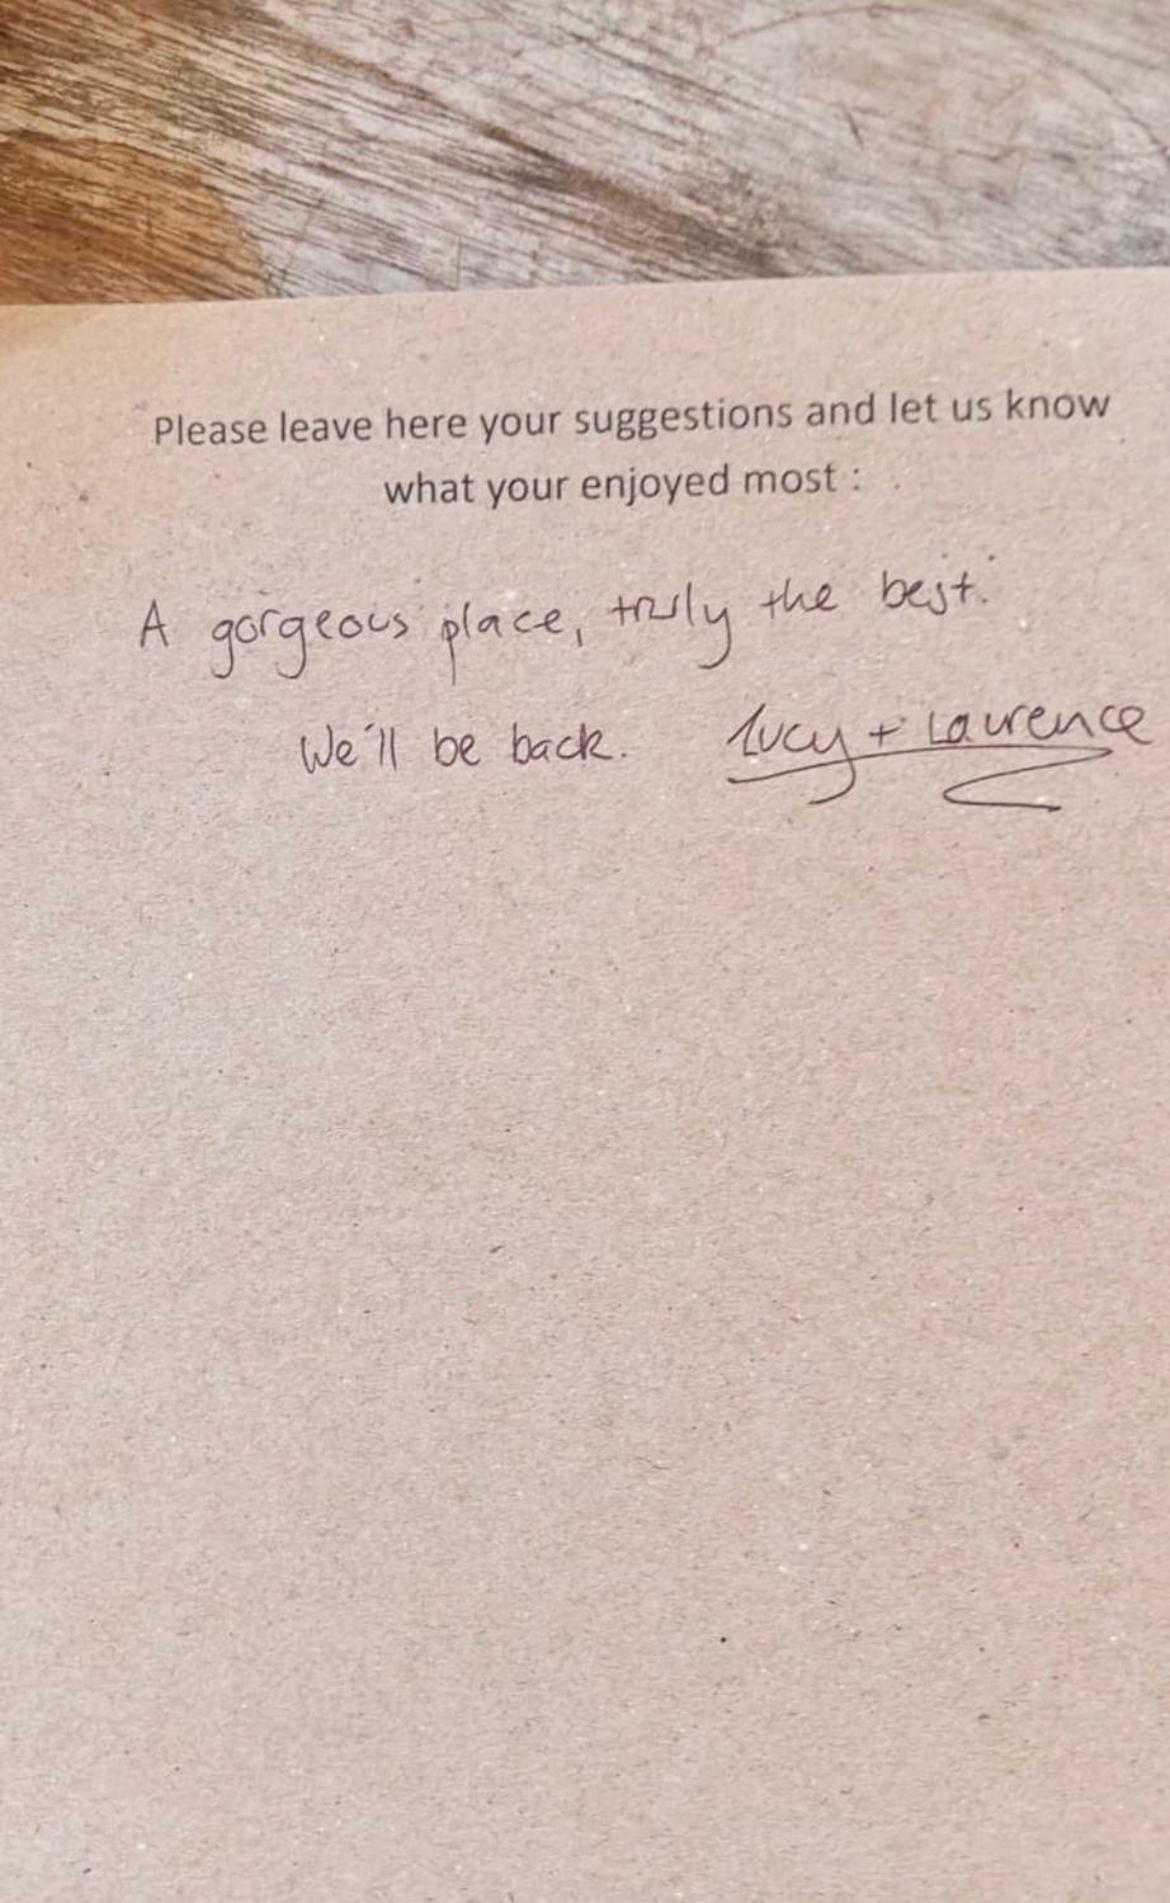 Please leave here your suggestions and let us know
what your enjoyed most :
A gorgeous place, truly the best.
We'll be back. Lucy + Laurence